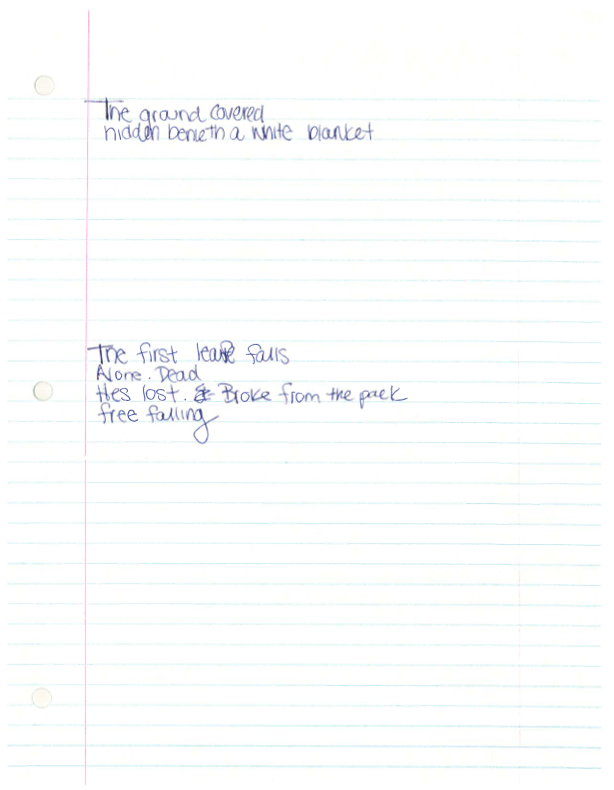 The ground covered
hidden benieth a white blanket
The first leafe falls
Alone. Dead
Hes lost. Broke from the pack
free falling